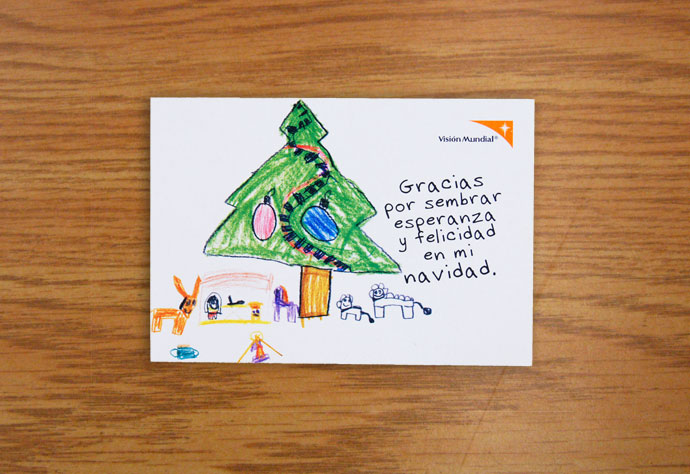 Visión Mundial®
Gracias
por sembrar
esperanza
y felicidad
en mi
navidad.